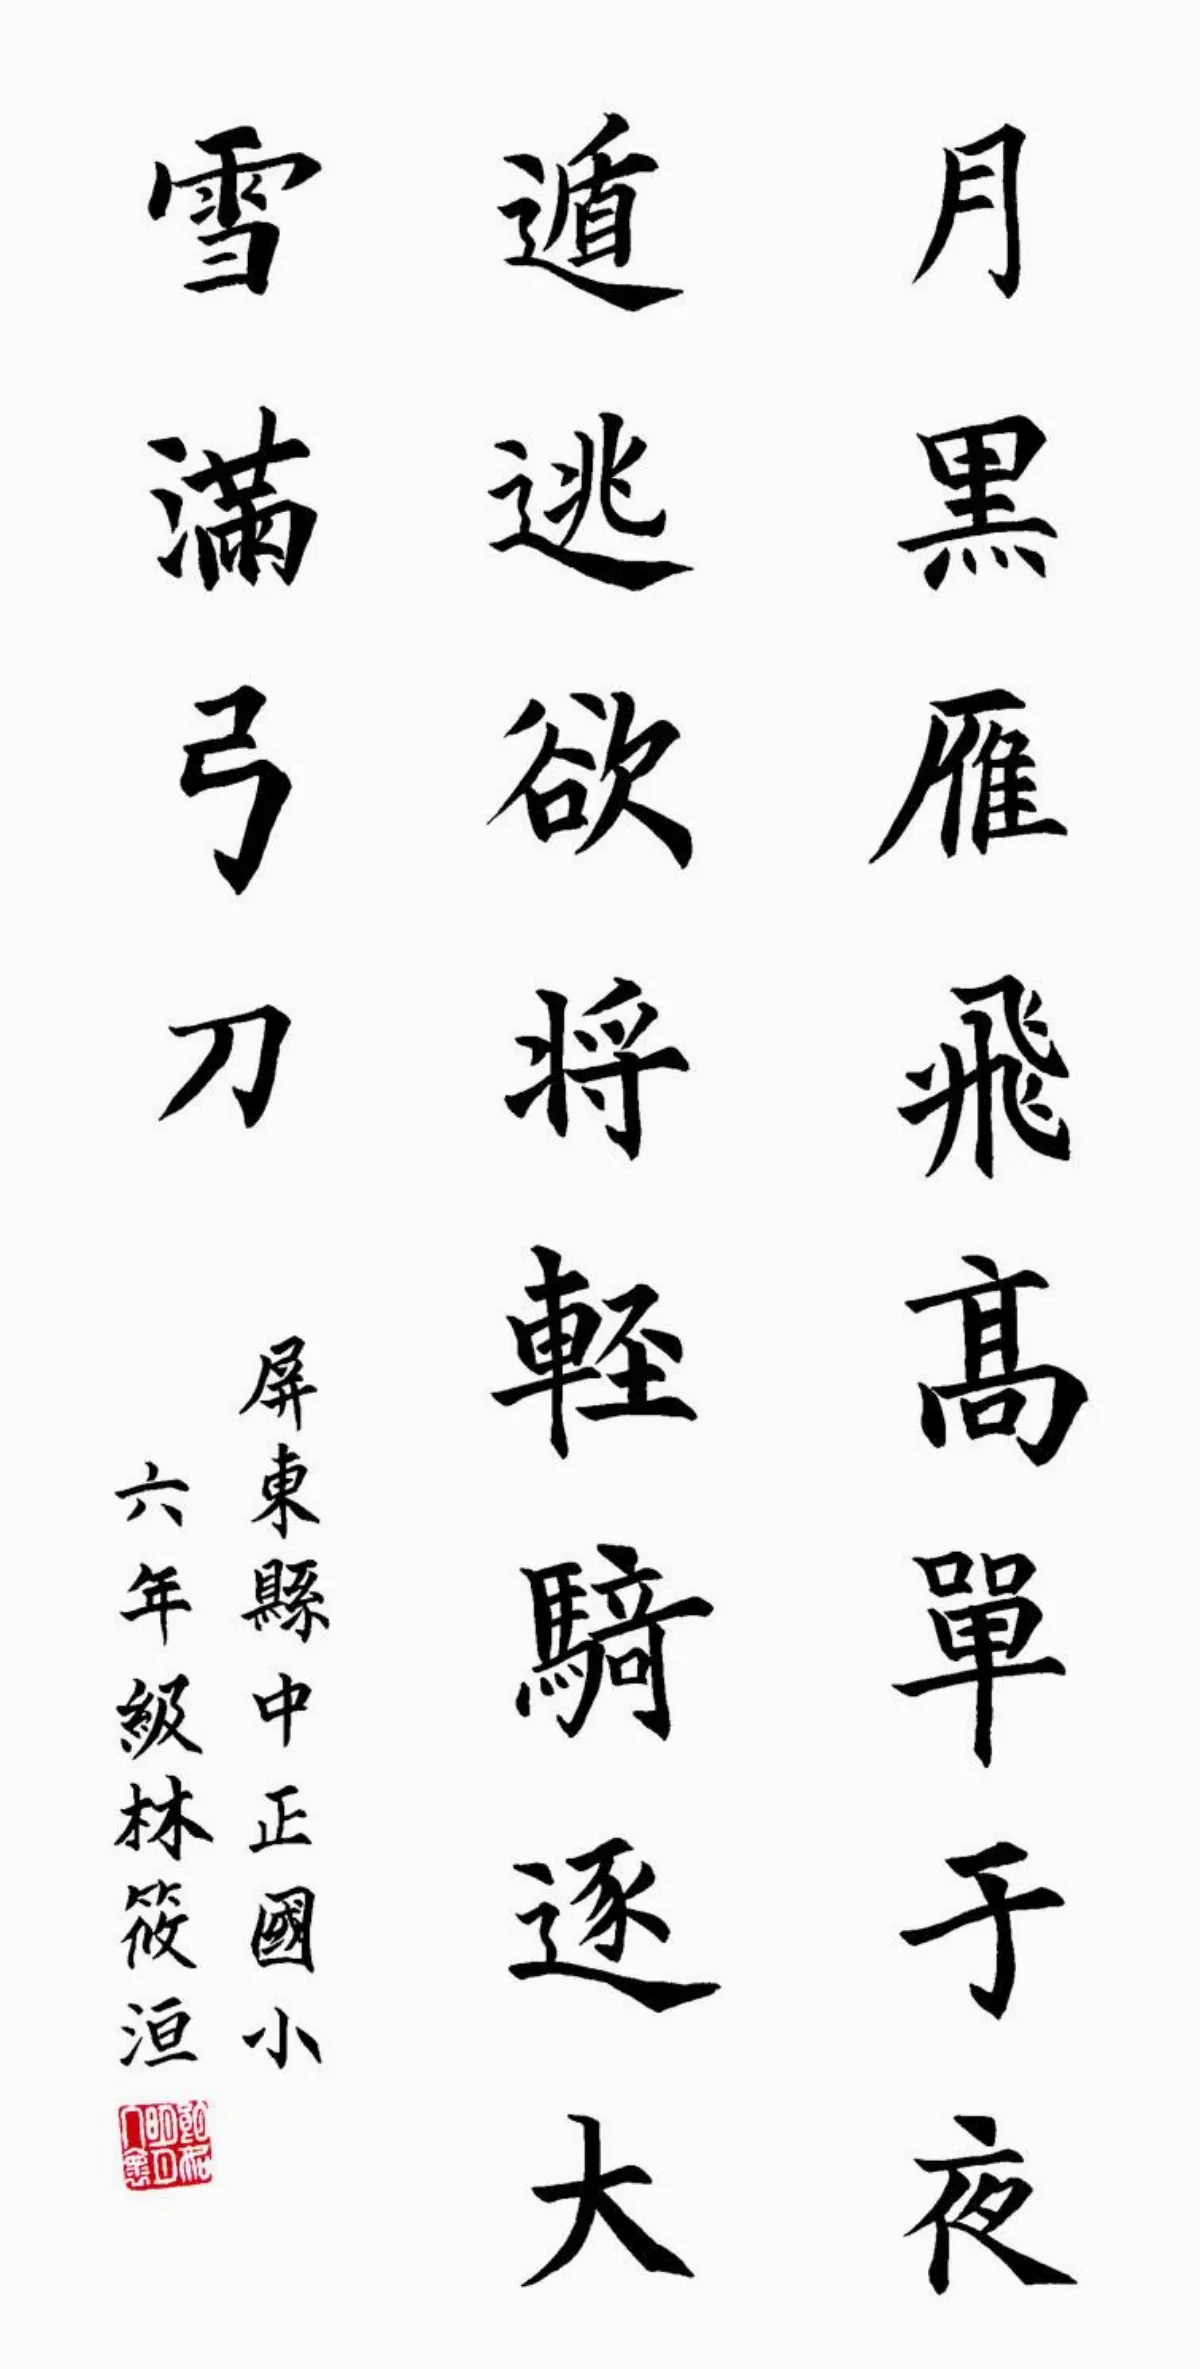 月黑雁飛高單于夜
遁逃欲將輕騎逐大
雪滿弓刀
屏東縣中正國小
六年級林筱洹